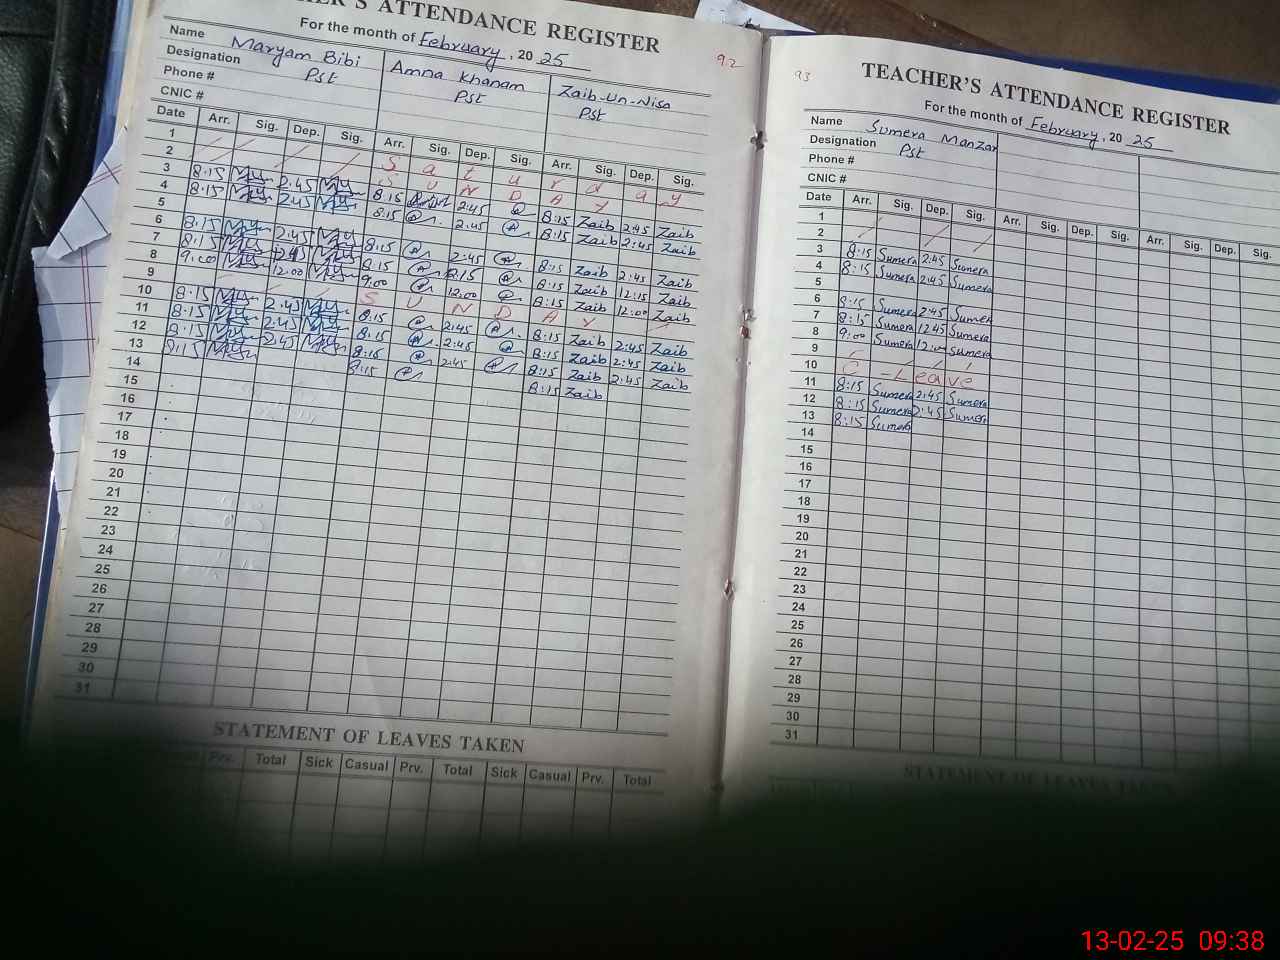 TEACHER'S ATTENDANCE REGISTER
For the month of February, 2025
92
Name Maryam Bibi Amna Khanam Zaib-Un-Nisa
Designation Pst Pst Pst
Phone #
CNIC #
Date Arr. Sig. Dep. Sig. Arr. Sig. Dep. Sig. Arr. Sig. Dep. Sig.
1 S a t u r d a y
2 S U N D A Y
3 8:15 2:45 8:15 2:45 8:15 Zaib 2:45 Zaib
4 8:15 2:45 8:15 2:45 8:15 Zaib 2:45 Zaib
5
6 8:15 2:45 8:15 2:45 8:15 Zaib 2:45 Zaib
7 8:15 8:15 8:15 Zaib 12:15 Zaib
8 9:00 12:00 9:00 12:00 8:15 Zaib 12:00 Zaib
9 S U N D A Y
10 8:15 2:45 8:15 2:45 8:15 Zaib 2:45 Zaib
11 8:15 2:45 8:15 2:45 8:15 Zaib 2:45 Zaib
12 8:15 2:45 8:15 2:45 8:15 Zaib 2:45 Zaib
13 8:15 8:15 8:15 Zaib
14
15
16
17
18
19
20
21
22
23
24
25
26
27
28
29
30
31
STATEMENT OF LEAVES TAKEN
Prv. Total Sick Casual Prv. Total Sick Casual Prv. Total
93
TEACHER'S ATTENDANCE REGISTER
For the month of February, 2025
Name Sumera Manzar
Designation Pst
Phone #
CNIC #
Date Arr. Sig. Dep. Sig. Arr. Sig. Dep. Sig. Arr. Sig. Dep. Sig.
1
2
3 8:15 Sumera 2:45 Sumera
4 8:15 Sumera 2:45 Sumera
5
6 8:15 Sumera 2:45 Sumera
7 8:15 Sumera 12:45 Sumera
8 9:00 Sumera 12:00 Sumera
9
10 C-Leave
11 8:15 Sumera 2:45 Sumera
12 8:15 Sumera 2:45 Sumera
13 8:15 Sumera
14
15
16
17
18
19
20
21
22
23
24
25
26
27
28
29
30
31
STATEMENT OF LEAVES TAKEN
13-02-25 09:38